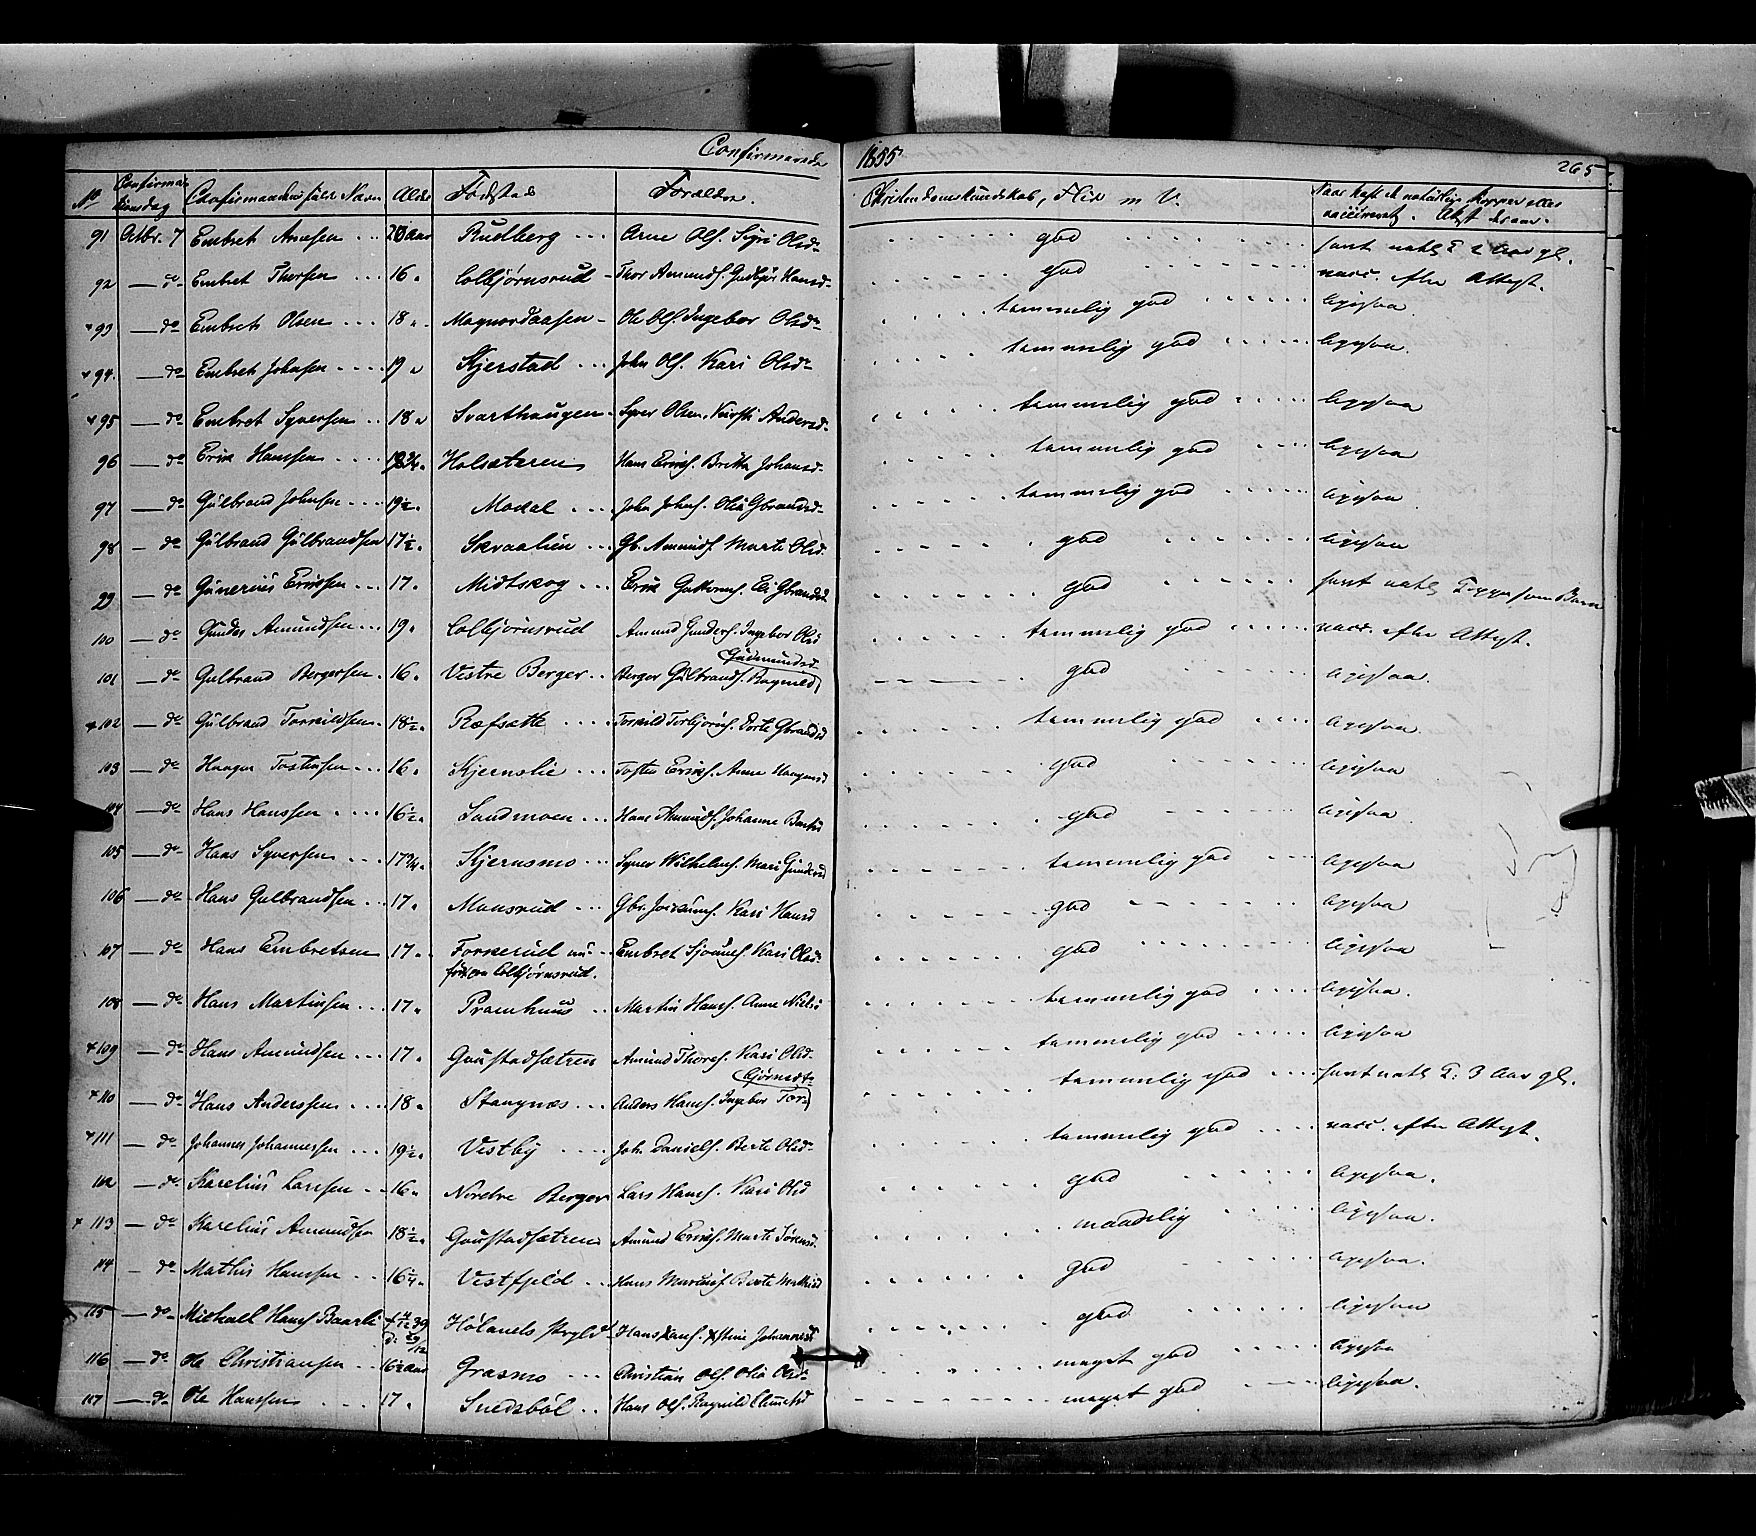 Confirmerede 1855. 265
No Confirmationsdag Confirmandens fulde Navn Alder Fødested Forældre. Christendomskundskab, Flid m. V. Naar havt de naturlige Kopper eller vaccineret. Attest derom.
91 Octbr. 7 Embret Arnesen 20 Aar Rudberg Arne Ols. Siri Olsd. god havt natl. 2 Aar gl.
92 — do Embret Thorsen 16 Colbjørnsrud Thor Amunds. Gudbjør Hansd. god vacc. efter Attest.
+ 93 — do Embret Olsen 18 Magnordaasen Ole Ols. Ingebor Olsd. temmelig god ligesaa
+ 94. — do Embret Johnsen 19 Kjerstad John Ols. Kari Olsd. temmelig god ligesaa.
+ 95 — do Embret Syversen 18 Svarthaugen Syver Olsen. Kirsti Andersd. temmelig god ligesaa
96 — do Erik Hansen Holsæteren Hans Eriks. Britta Johansd. temmelig god ligesaa
97 — do Gulbrand Johnsen 19½ Mokal John Johns. Olia Gbrandsd. temmelig god ligesaa
98 — do Gulbrand Gulbrandsen 17½ Skraalien Gb. Amunds. Marte Olsd. god ligesaa
99 — do Gunerius Eriksen 17. Midtskog Erik Guttorms. Eli Gbrandsd. god havt natl. Kopper som Barn
100 — do Gunder Amundsen 19. Colbjørnsrud Amund Gunders. Ingebor Olsd temmelig god vacc. efter Attest.
101 — do Gulbrand Bergersen 16. Vestre Berger Berger Gulbrands. Ragnild Gudmundsd. god ligesaa.
+ 102 — do Gulbrand Torkildsen 18½ Ræfsætte Torkild Torbjørns. Dorte Gbrandsd temmelig god ligesaa
103 — do Haagen Tostensen 16. Kjernslie Tosten Eriks. Anne Haagensd god ligesaa
104 — do Hans Hanssen 16½ Sandmoen Hans Amunds. Johanne god ligesaa
105 — do Hans Syversen 17¾ Kjernsmo Syver Wilhelms. Mari Gundersd temmelig god ligesaa
106 — do Hans Gulbrandsen 17. Monsrud Gbr. Kari Hansd god ligesaa
107 — do Hans Embretsen 17. Forkerud nu
før en Colbjørnsrud. Embret Kari Olsd. god ligesaa
108 — do Hans Martinsen 17. Pramhuus Martin Hans. Anne Nielsd temmelig god ligesaa.
+ 109 — do Hans Amundsen 17. Goustadsætren Amund Thores. Kari Olsd. temmelig god ligesaa
+ 110 — do Hans Anderssen 18. Stangnæs Anders Hans. Ingebor Torbjørnsdt. temmelig god havt natl. 3 Aar gl.
+ 111 — do Johannes Johannessen 19½ Vestby Joh. Daniels. Berte Olsd. temmelig god vacc. efter Attest.
112 — do Karelius Larssen 16. Nordre Berger Lars Hans. Kari Olsd god ligesaa.
+ 113 — do Karelius Amundsen 18½ Goustadsætren Amund Eriks. Marte Sørensd. maadelig ligesaa.
114 — do Mathis Hansen 16¼ Vestfjeld Hans Berte Mathisd god ligesaa.
115 — do Michael Hans. Baarli Hølands Hans Hans. Johannesd god ligesaa
116 — do Ole Christiansen 16½ Aar Grasmo Christian Ols. Olia Olsd. meget god ligesaa
117 — do Ole Hanssen 17. Snedsbøl Hans Ols. Ragnild meget god ligesaa.